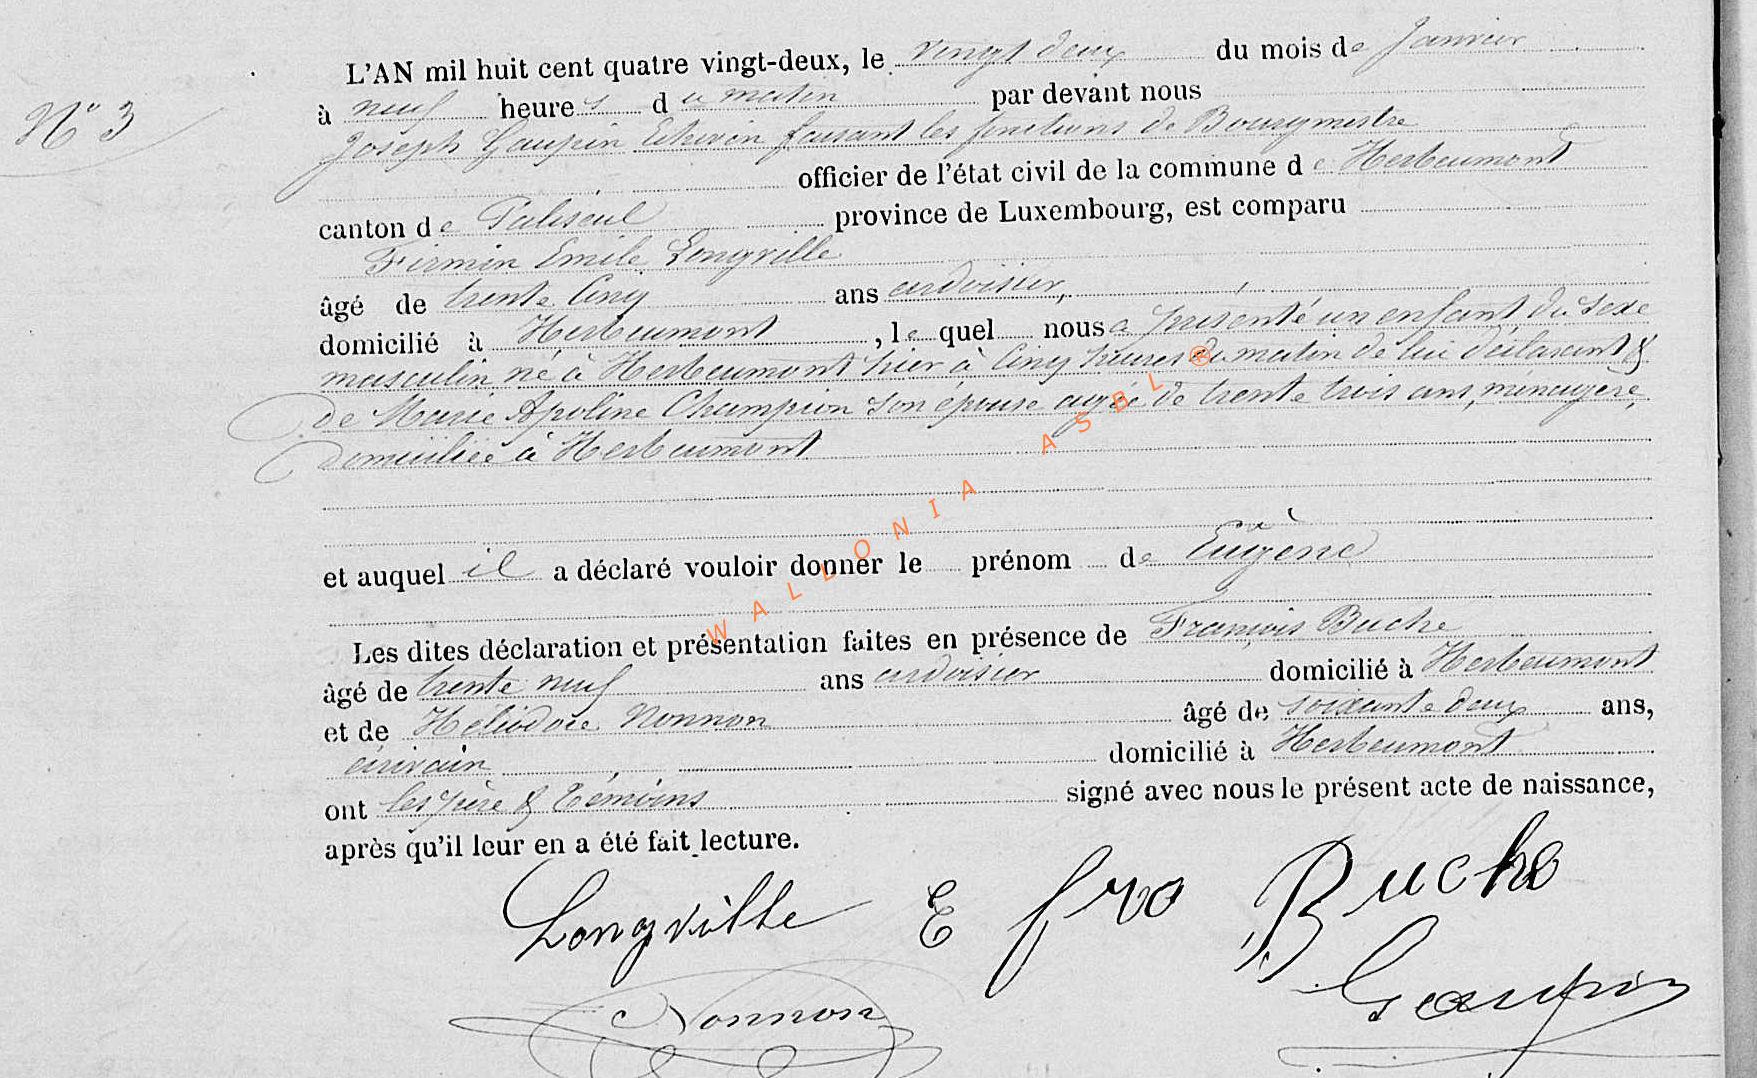 N° 3
L'AN mil huit cent quatre vingt-deux, le vingt deux du mois de Janvier
à neuf heures du matin par devant nous
Joseph Gaupin Echevin faisant les fonctions de Bourgmestre
officier de l'état civil de la commune de Herbeumont
canton de Paliseul province de Luxembourg, est comparu
Firmin Emile Longville
âgé de trente cinq ans ardoisier,
domicilié à Herbeumont, lequel nous a présenté un enfant du sexe
masculin né à Herbeumont hier à cinq heures du matin de lui déclarant &
de Marie Apoline Champion son épouse agée de trente trois ans, ménagère,
domiciliée à Herbeumont
et auquel il a déclaré vouloir donner le prénom de Eugène
Les dites déclaration et présentation faites en présence de François Buche
âgé de trente neuf ans ardoisier domicilié à Herbeumont
et de Héliodore Nonnon âgé de soixante deux ans,
écrivain domicilié à Herbeumont
ont les père & témoins signé avec nous le présent acte de naissance,
après qu'il leur en a été fait lecture.
Longville E fro Buche
Nonnon Gaupin
WALLONIA ASBL ®